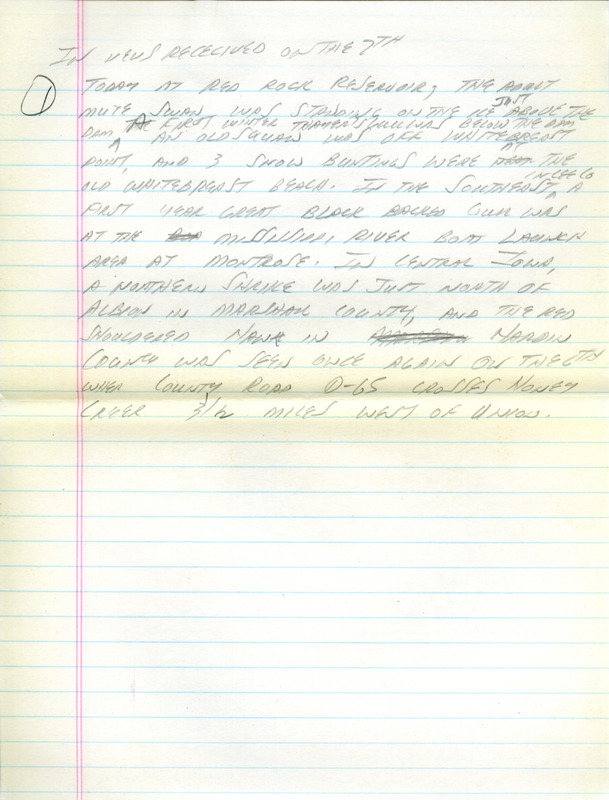 IN NEWS RECEIVED ON THE 7TH
① TODAY AT RED ROCK RESERVOIR, THE ADULT
MUTE SWAN WAS STANDING ON THE ICE JUST ABOVE THE
DAM, A FIRST WINTER THAYER'S GULL WAS BELOW THE DAM
AN OLDSQUAW WAS OFF WHITEBREAST
POINT, AND 3 SNOW BUNTINGS WERE THE
OLD WHITEBREAST BEACH. IN THE SOUTHEAST, IN LEE CO A
FIRST YEAR GREAT BLACK BACKED GULL WAS
AT THE MISSISSIPPI RIVER BOAT LAUNCH
AREA AT MONTROSE. IN CENTRAL IOWA,
A NORTHERN SHRIKE WAS JUST NORTH OF
ALBION IN MARSHALL COUNTY, AND THE RED
SHOULDERED HAWK IN HARDIN
COUNTY WAS SEEN ONCE AGAIN ON THE 6TH
WHER COUNTY ROAD D-65 CROSSES HONEY
CREEK 3 1/2 MILES WEST OF UNION.